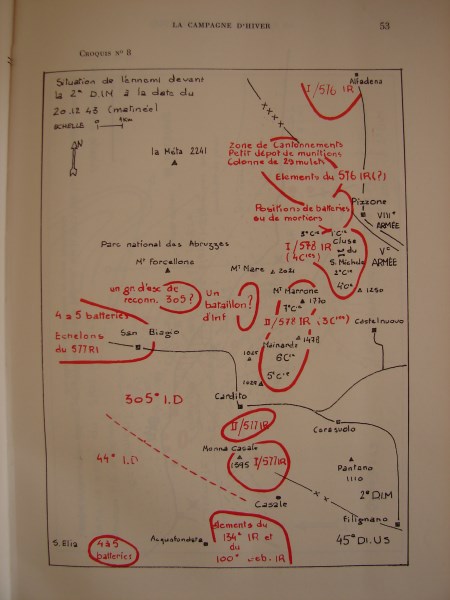 LA CAMPAGNE D'HIVER
53
CROQUIS Nº 8
Situation de l'ennemi devant
la 2e D.I.M à la date du
20.12.43 (matinée)
ECHELLE 0 1Km
N
I/576 IR
Alfadena
la Méta 2241
Zone de Cantonnements
Petit dépot de munitions
Colonne de 29 mulets
Elements du 576 IR(?)
Pizzone
Positions de batteries
ou de mortiers
VIIIe
ARMÉE
Ve
ARMÉE
3e Cie
1e Cie
I/578 IR
(4Cies)
Cluse
du
S. Michele
2e Cie
4e Cie
1250
Parc national des Abruzzes
Mt Forcellone
Mt Mare 2021
un gr d'esc de
reconn. 305?
Un
bataillon?
d'Inf
Mt Marrone
1770
7e Cie
II/578 IR (3Cies)
Castelnuovo
4 à 5 batteries
San Biagio
Echelons
du 577RI
Mainarde
1478
6Cie
1025
5e Cie
Cardito
305e I.D
II/577IR
Cerasuolo
44e I.D
Monna Casale
1395
I/577IR
Pantano
1110
2e D.I.M
Casale
Filignano
45e DI.US
S. Elia
4 à 5
batteries
Acquafondata
elements du
134e IR et
du
100e Geb. IR